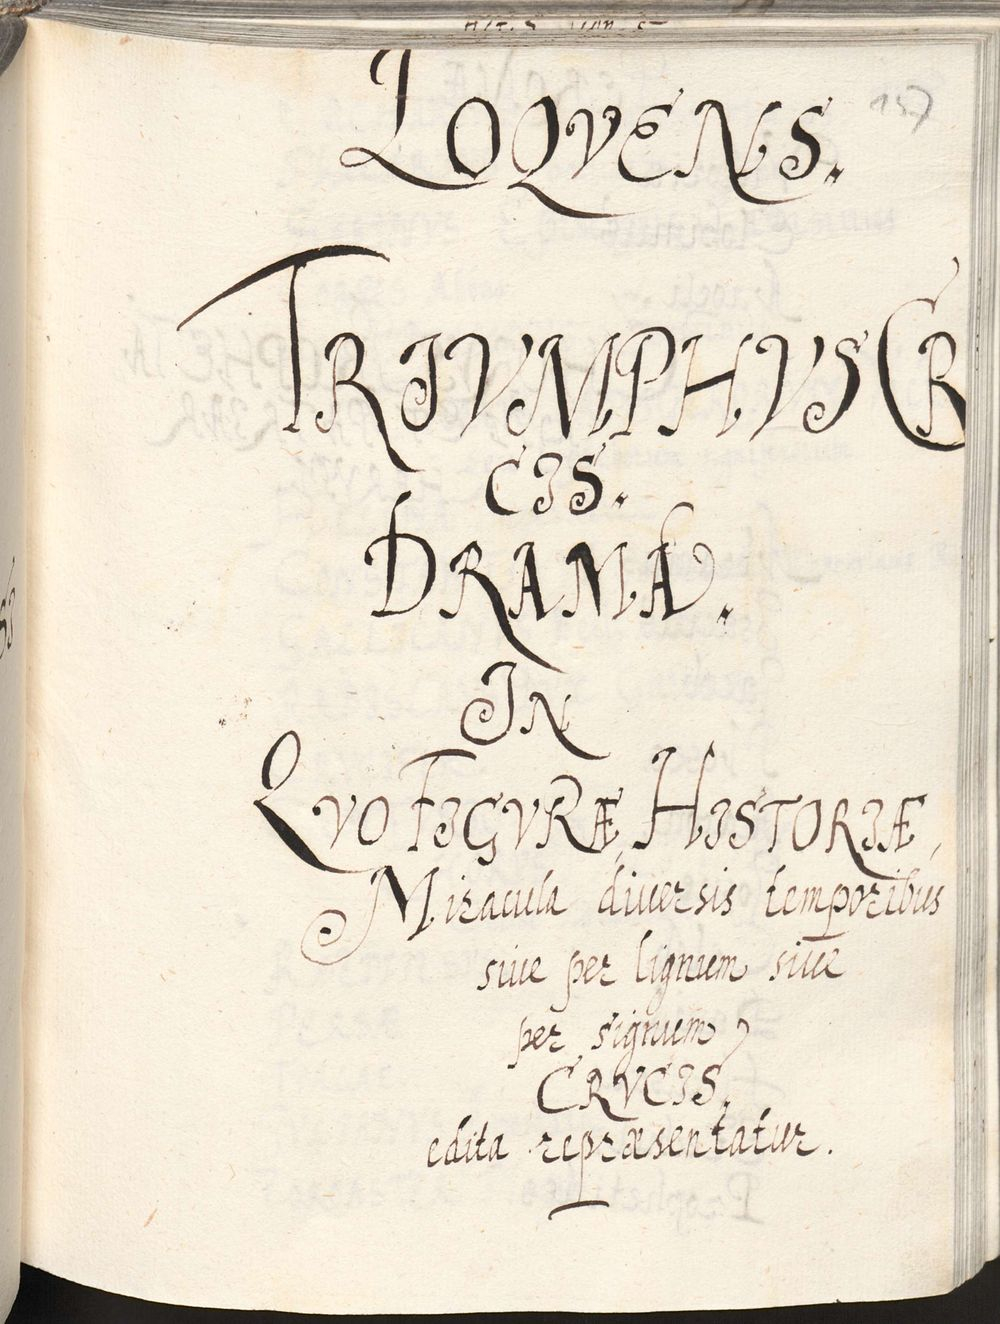 LOQVENS.
TRIVMPHVS CR
CIS.
DRAMA.
IN
QVO FIGVRÆ, HISTORIÆ,
Miracula diuersis temporibus
siue per lignum siue
per signum
CRVCIS.
edita repræsentatur.